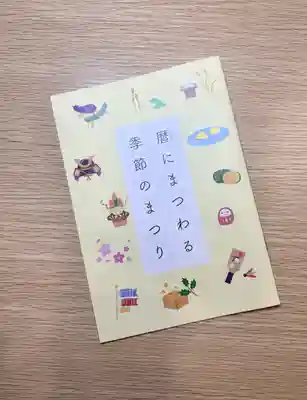 暦にまつわる
季節のまつり